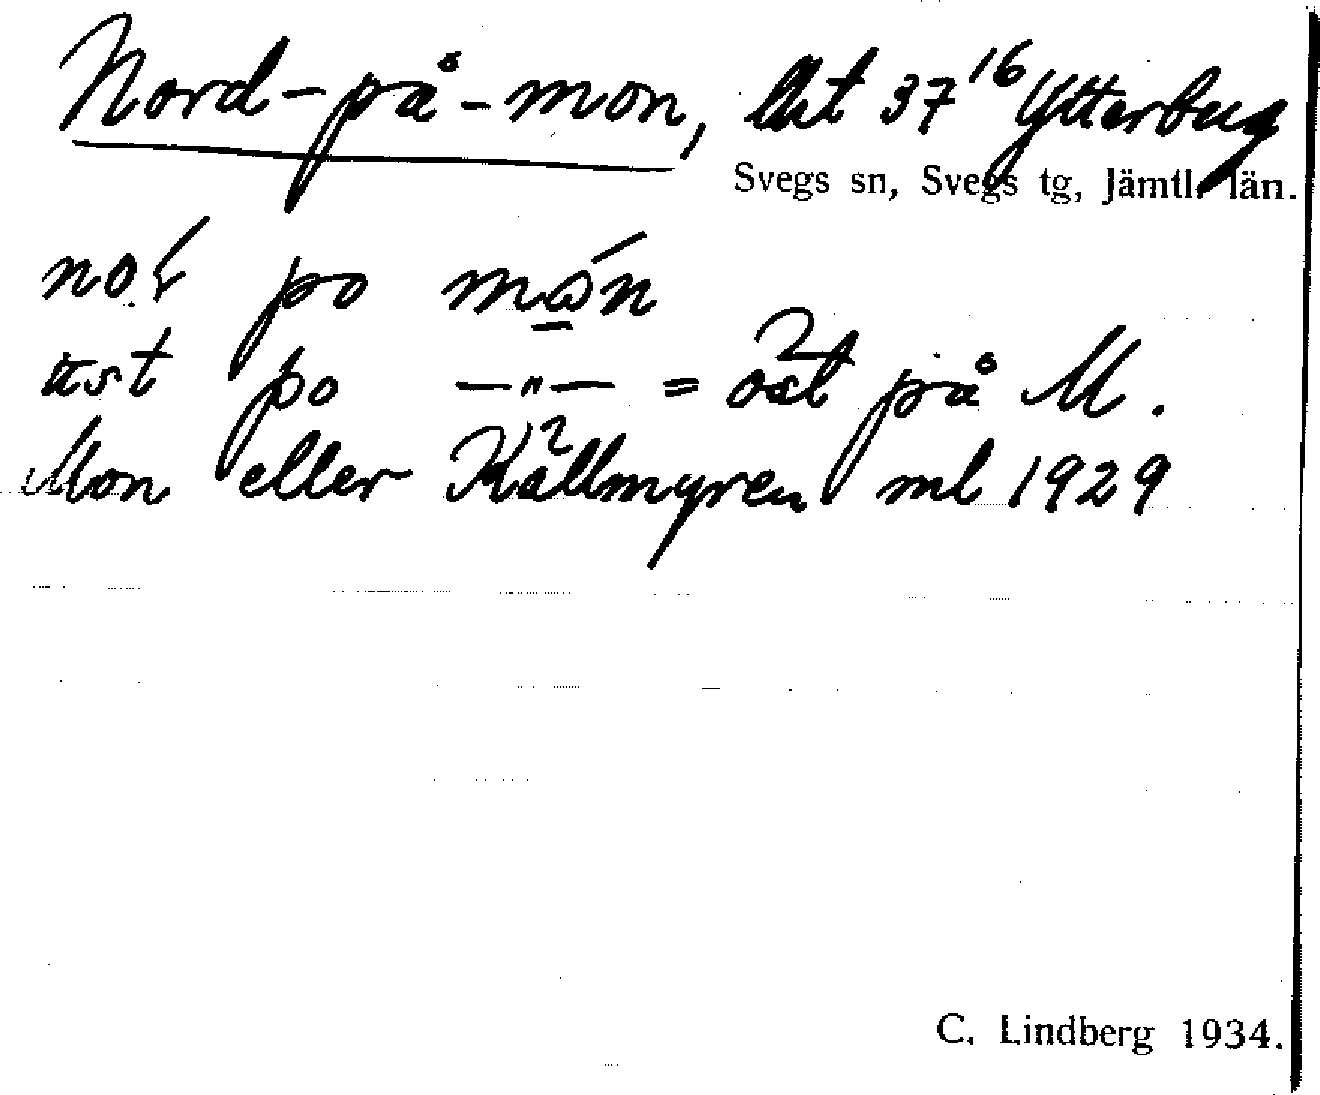 Nord-på-mon, lht 37¹⁶ Ytterberg
Svegs sn, Svegs tg, Jämtl. län.
po
po —"— = öst på M.
Mon eller Källmyren ml 1929
C. Lindberg 1934.